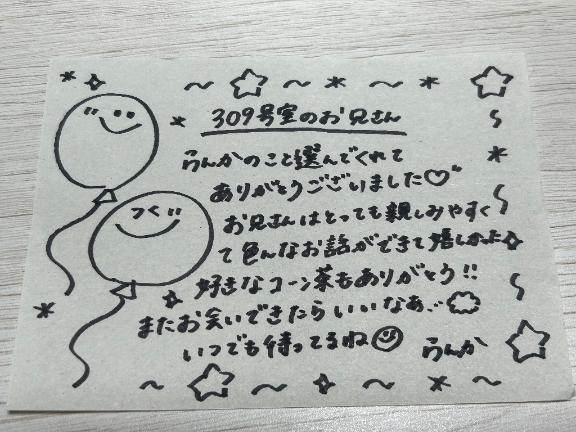 309号室のお兄さん
らんかのこと選んでくれて
ありがとうございました♡"
お兄さんはとっても親しみやすく
て色んなお話ができて嬉しかった
好きなコーン茶もありがとう!!
またお会いできたらいいなぁ··
いつでも待ってるね
らんか